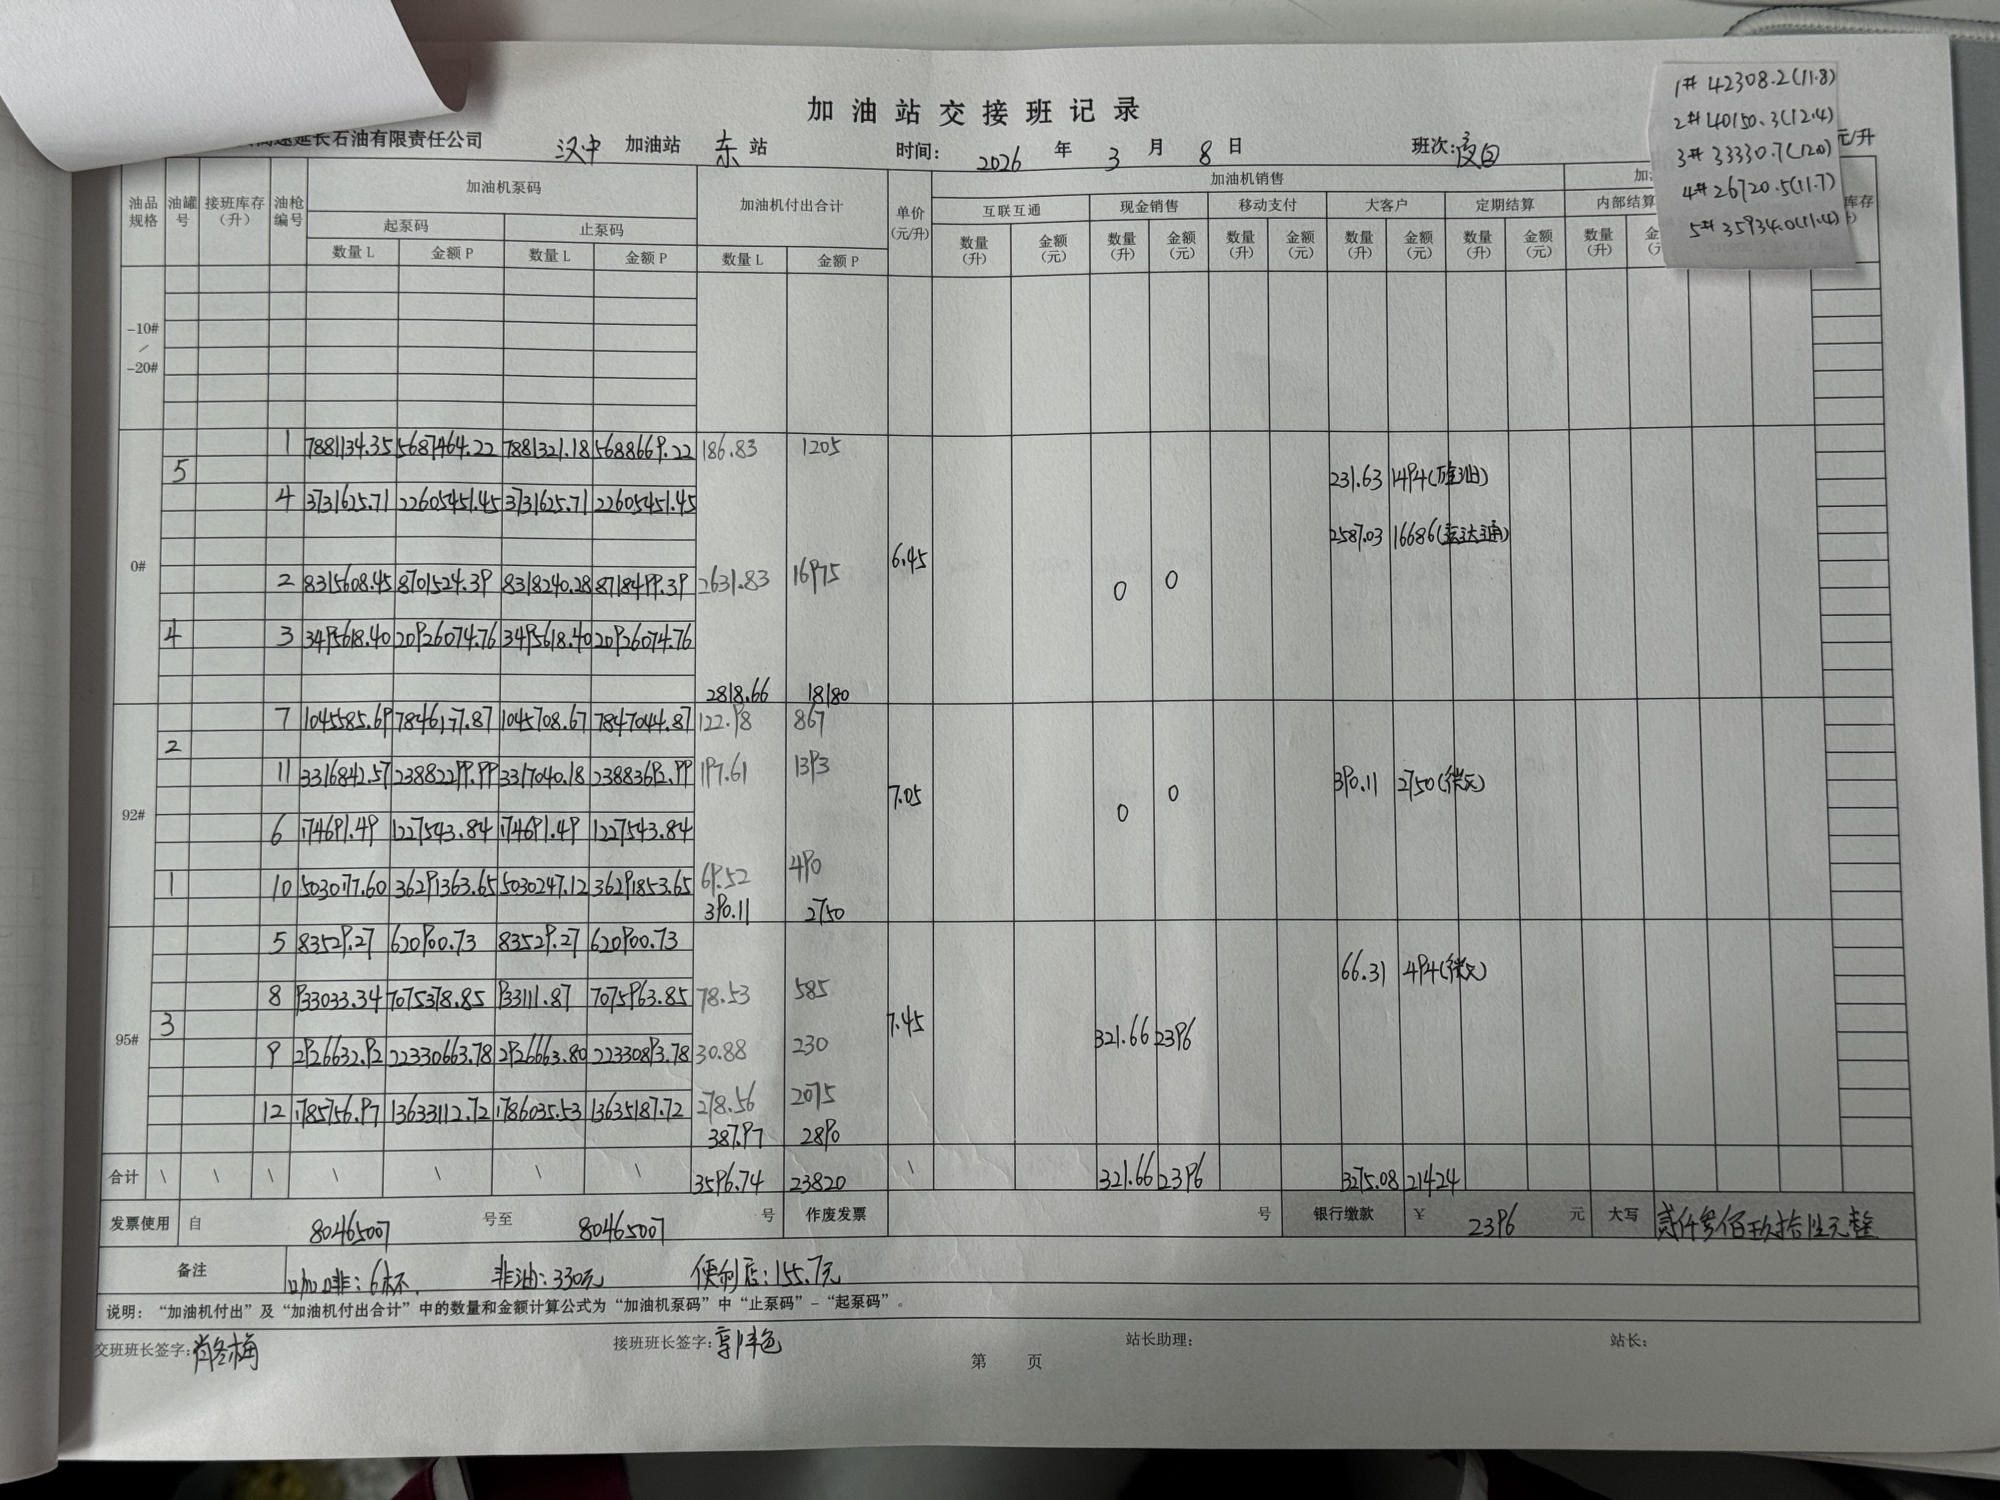 加油站交接班记录
延长石油有限责任公司 汉中 加油站 东 站 时间: 2026 年 3 月 8 日 班次:夜白 元/升
1# 42308.2(11.8)
2# 40150.3(12.4)
3# 33330.7(12.0)
4# 26720.5(11.7)
5# 35934.0(11.4)
油品规格 油罐号 接班库存(升) 油枪编号 加油机泵码 加油机付出合计 单价(元/升) 加油机销售
起泵码 止泵码 互联互通 现金销售 移动支付 大客户 定期结算 内部结算 库存
数量 L 金额 P 数量 L 金额 P 数量 L 金额 P 数量(升) 金额(元) 数量(升) 金额(元) 数量(升) 金额(元) 数量(升) 金额(元) 数量(升) 金额(元) 数量(升)
-10#
/
-20#
1 7881134.35 5687464.22 7881321.18 5688669.22 186.83 1205
5 231.63 1494
4 3731625.71 22605451.45 3731625.71 22605451.45
2587.03 16686(宏达通)
0# 6.45
2 8315608.45 8701524.39 8318240.28 8718499.39 2631.83 16975 0 0
4 3 3495618.40 20926074.76 3495618.40 20926074.76
2818.66 18180
7 1045585.69 7846177.87 1045708.67 7847044.87 122.98 867
2
11 3316842.57 23882299.99 3317040.18 23883692.99 197.61 1393 390.11 2750
92# 7.05 0 0
6 174691.49 1227543.84 174691.49 1227543.84
1 10 5030177.60 36291363.65 5030247.12 36291853.65 69.52 490
390.11 2750
5 83529.27 620900.73 83529.27 620900.73
66.31 494
8 933033.34 7075378.85 933111.87 7075963.85 78.53 585
3 7.45
95# 9 2926632.92 22330663.78 2926663.80 22330893.78 30.88 230 321.66 2396
12 1785756.97 13633112.72 1786035.53 13635187.72 278.56 2075
387.97 2890
合计 \ \ \ \ \ \ \ 3596.74 23820 \ 321.66 2396 3275.08 21424
发票使用 自 80465007 号至 80465007 号 作废发票 号 银行缴款 ¥ 2396 元 大写 贰仟叁佰玖拾陆元整
备注 咖啡:6杯. 非油:330元 便利店:155.7元
说明:“加油机付出”及“加油机付出合计”中的数量和金额计算公式为“加油机泵码”中“止泵码”-“起泵码”。
交班班长签字:肖冬梅 接班班长签字: 站长助理: 站长:
第 页